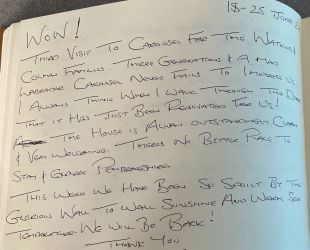 18-25 June 2
WOW!
THIRD VISIT TO CAROUSEL FOR THE
COLMAN FAMILIES. THREE GENERATIONS & A MAD
LABRADOR. CAROUSEL NEVER FAILS TO IMPRESS US.
I ALWAYS THINK WHEN I WALK THROUGH THE DOOR
THAT IT HAS JUST BEEN RENOVATED FOR US!
THE HOUSE IS ALWAYS OUTSTANDINGLY CLEAN
& VERY WELCOMING. THERES NO BETTER PLACE TO
STAY & EXPLORE PEMBROKESHIRE.
THIS WEEK WE HAVE BEEN SO SPOILT BY THE
GLORIOUS WALL TO WALL SUNSHINE AND WARM SEA
TEMPERATURE. WE WILL BE BACK!
THANK YOU